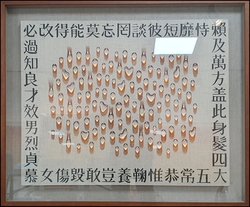 必改得能莫忘罔談彼短靡恃賴
及萬方蓋此身髮四大
慕女傷毀敢豈養鞠惟恭常五
過知良才效男烈貞